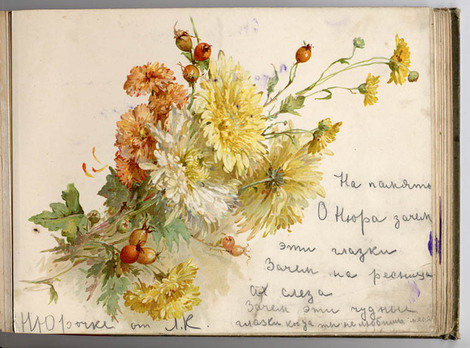 На память
О Нюра зачем
эти глазки
Зачем на ресница
их слеза
Зачем эти чудные
глазки когда ты не любишь
Нюрочке от Л.К.